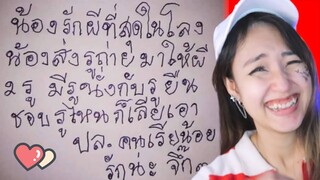 น้องรักผีที่สุดในโลง
น้องส่งรูถ่ายมาให้ผี
2 รู มีรูนั่งกับรูยืน
ชอบรูไหนก็เลียเอา
ปล. คนเรียน้อย
รักน่ะ จึก๓